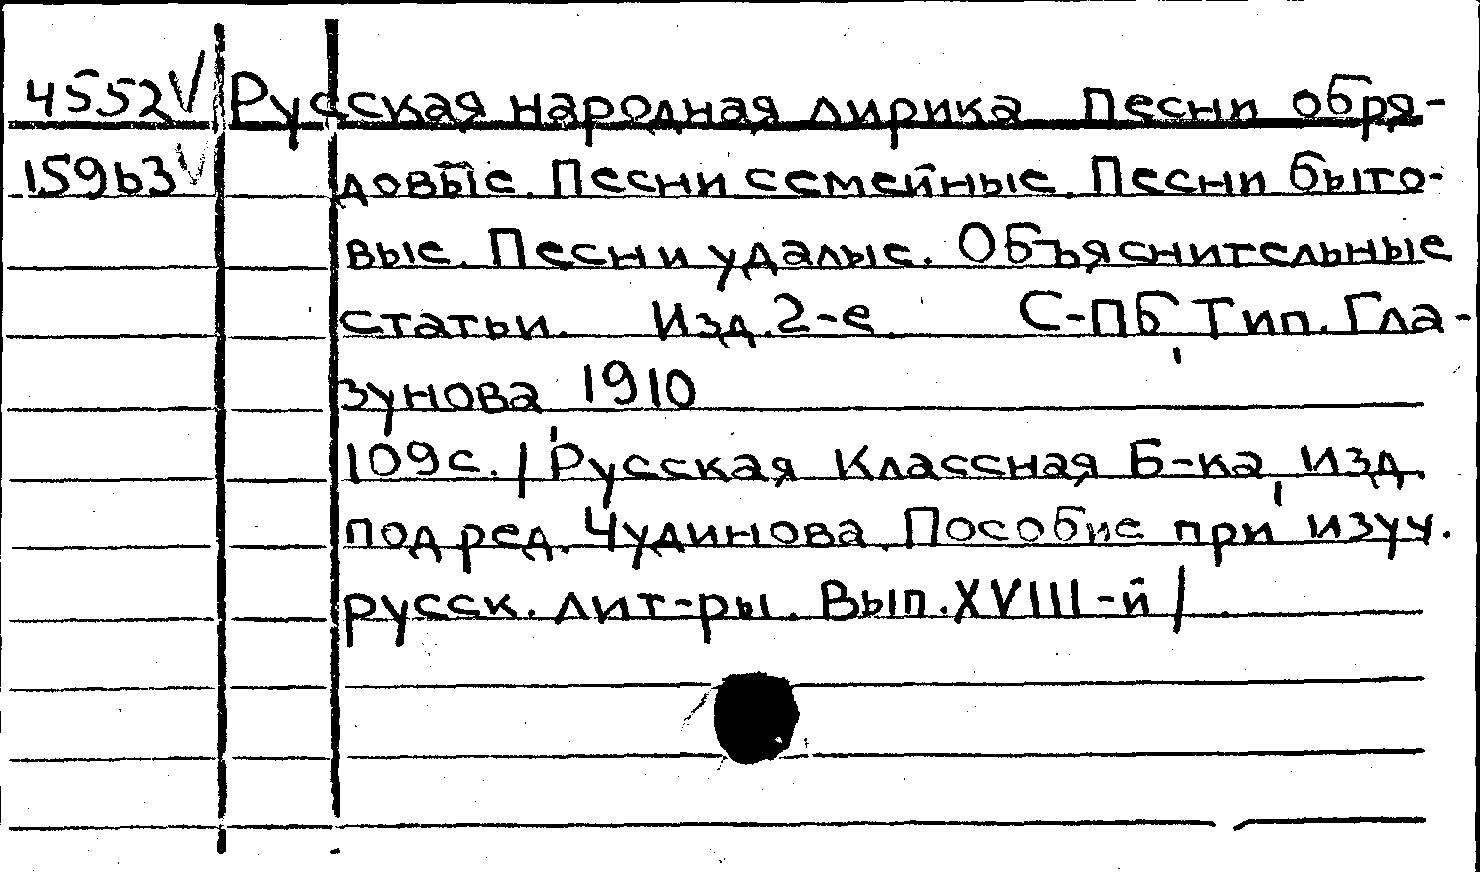 4552 V Русская народная лирика Песни обря-
159b3 V довые. Песни семейные. Песни быто-
вые. Песни удалые. Объяснительные
статьи. Изд. 2-е. С-ПБ, Тип. Гла-
зунова 1910
109с. / Русская Классная Б-ка, изд.
под ред. Чудинова. Пособие при изуч.
русск. лит-ры. Вып. XVIII-й /